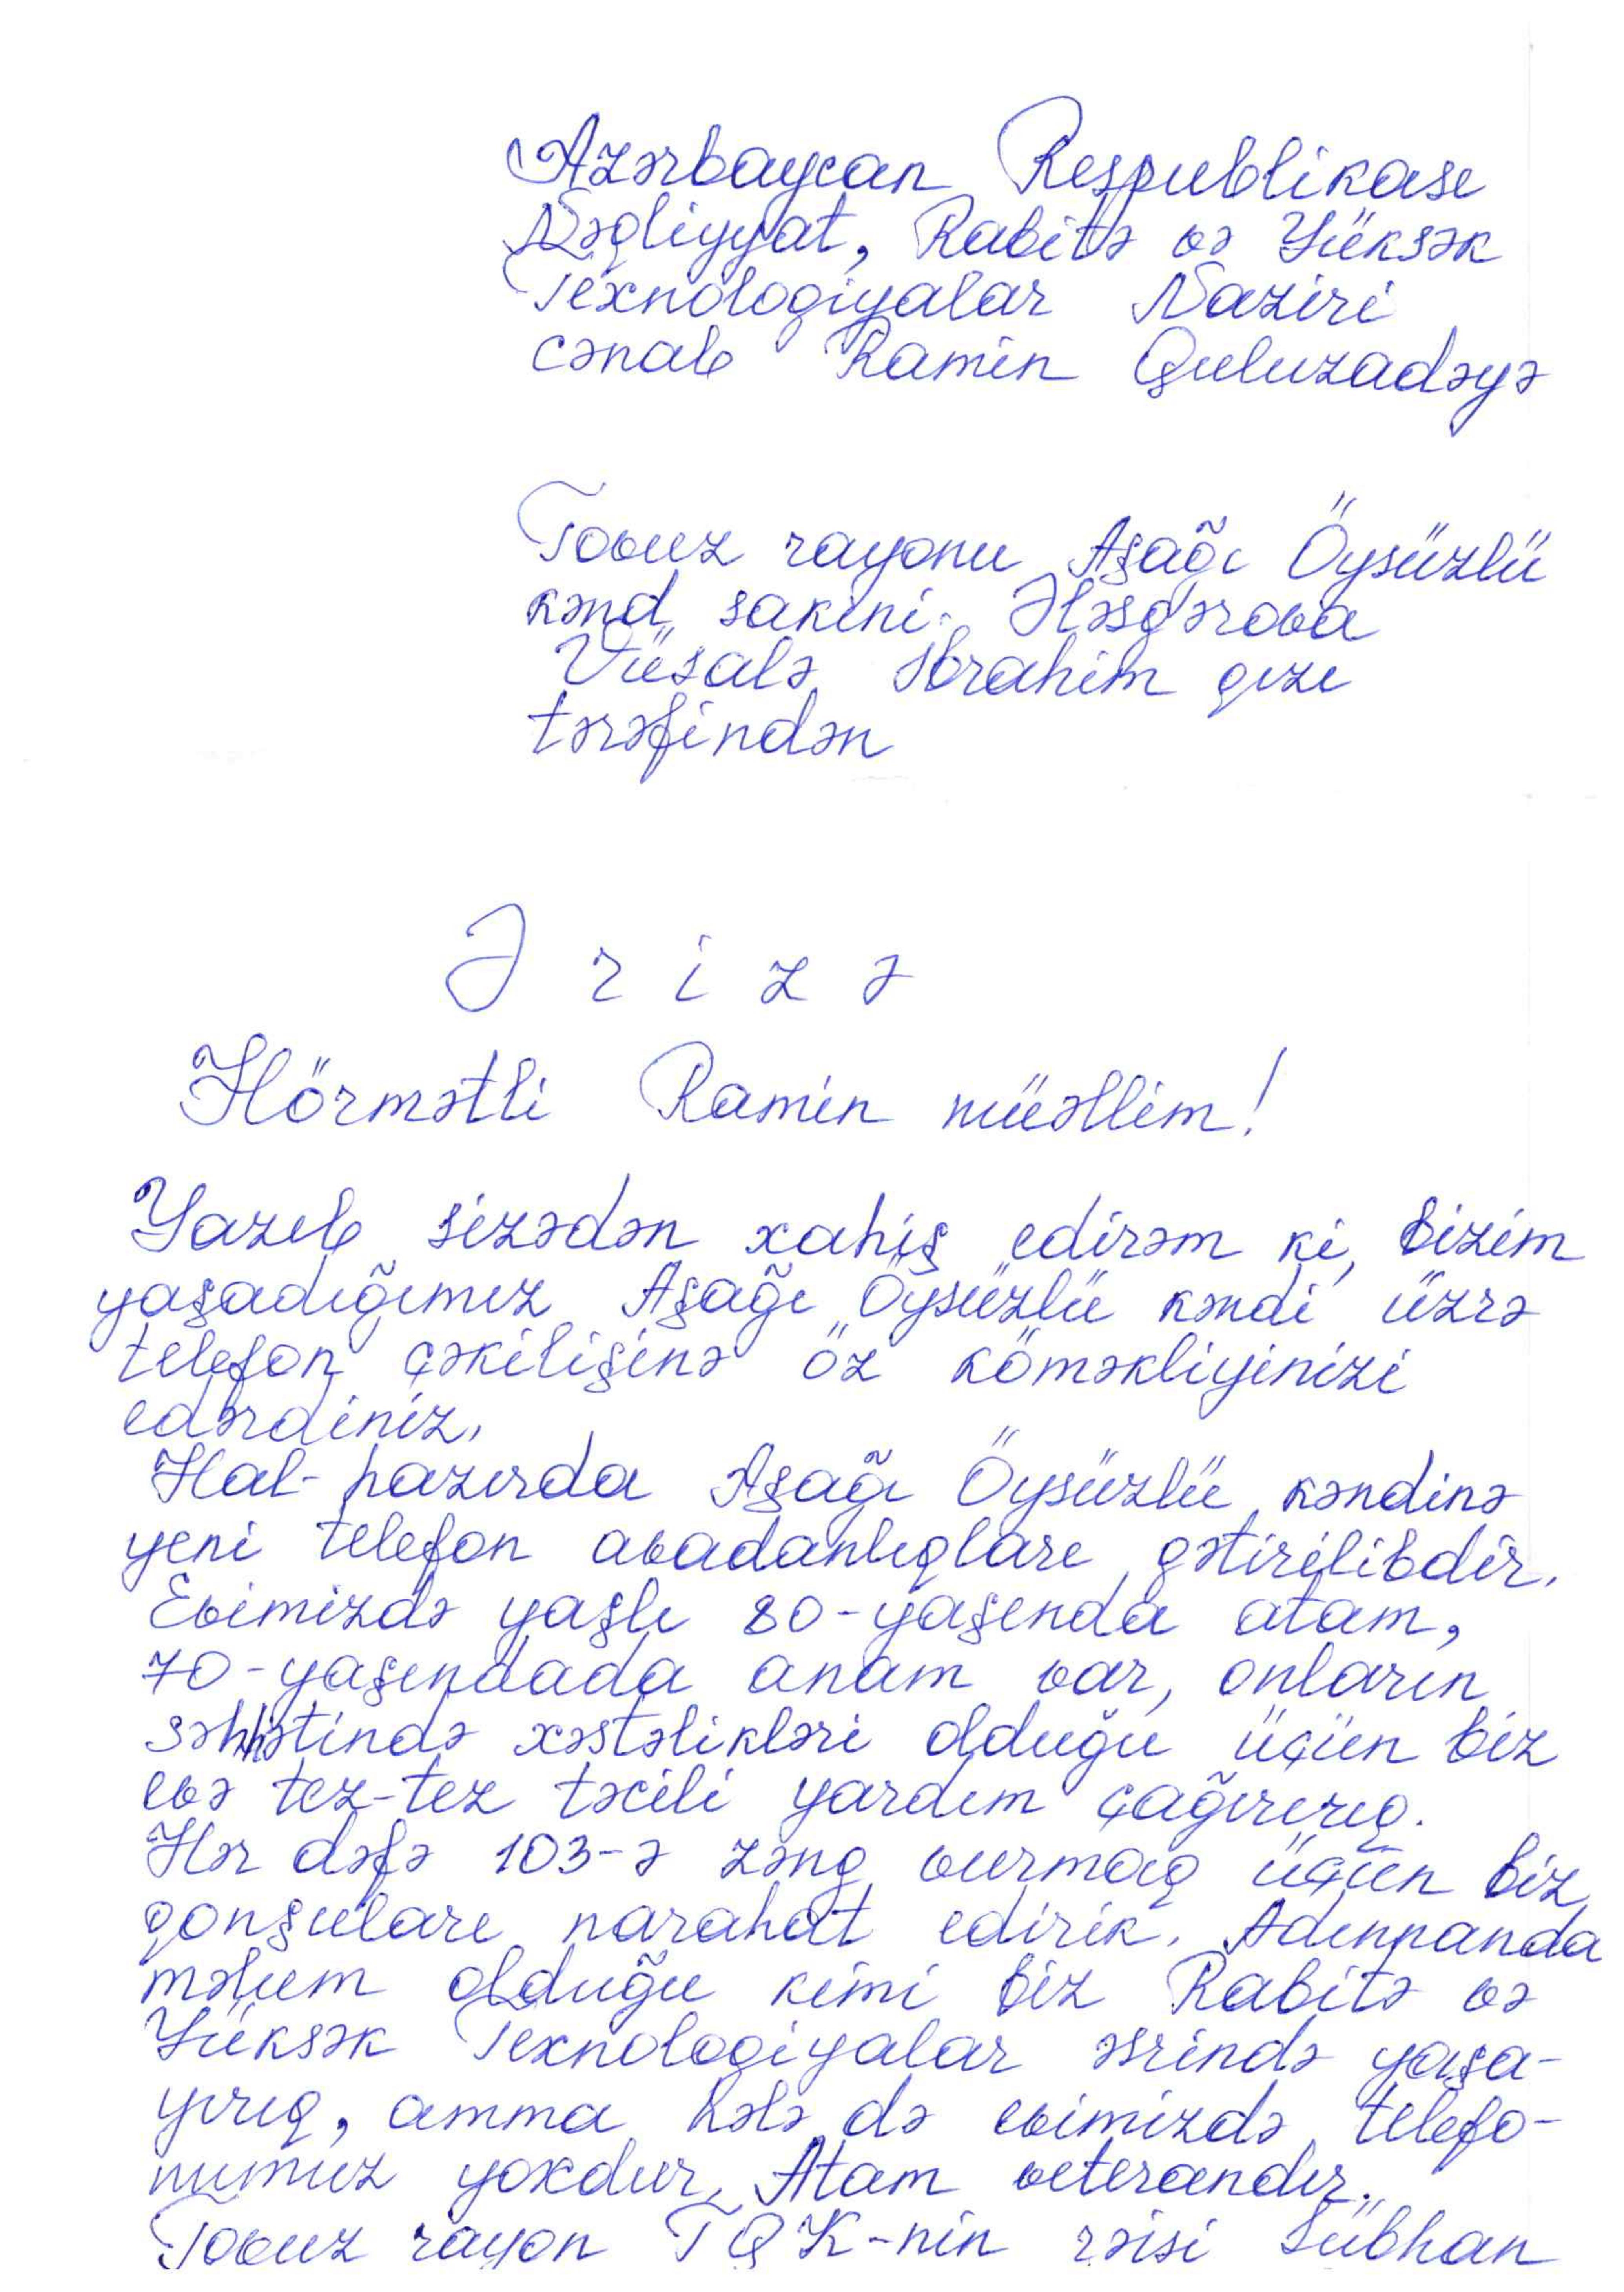 Azərbaycan Respublikası
Nəqliyyat, Rabitə və Yüksək
Texnologiyalar Naziri
cənab Ramin Quluzadəyə
Tovuz rayonu Aşağı Öysüzlü
kənd sakini Ələsgərova
Vüsalə İbrahim qızı
tərəfindən
Ərizə
Hörmətli Ramin müəllim!
Yazıb sizədən xahiş edirəm ki, bizim
yaşadığımız Aşağı Öysüzlü kəndi üzrə
telefon çəkilişinə öz köməkliyinizi
edərdiniz.
Hal-hazırda Aşağı Öysüzlü kəndinə
yeni telefon avadanlıqları gətirilibdir.
Evimizdə yaşlı 80-yaşında atam,
70-yaşındada anam var, onların
səhhətində xəstəlikləri olduğu üçün biz
evə tez-tez təcili yardım çağırırıq.
Hər dəfə 103-ə zəng vurmaq üçün biz
qonşuları narahat edirik.
məlum olduğu kimi biz Rabitə və
Yüksək Texnologiyalar əsrində yaşa-
yırıq, amma hələ də evimizdə telefo-
numuz yoxdur. Atam veterandır.
Tovuz rayon TQK-nin rəisi Sübhan